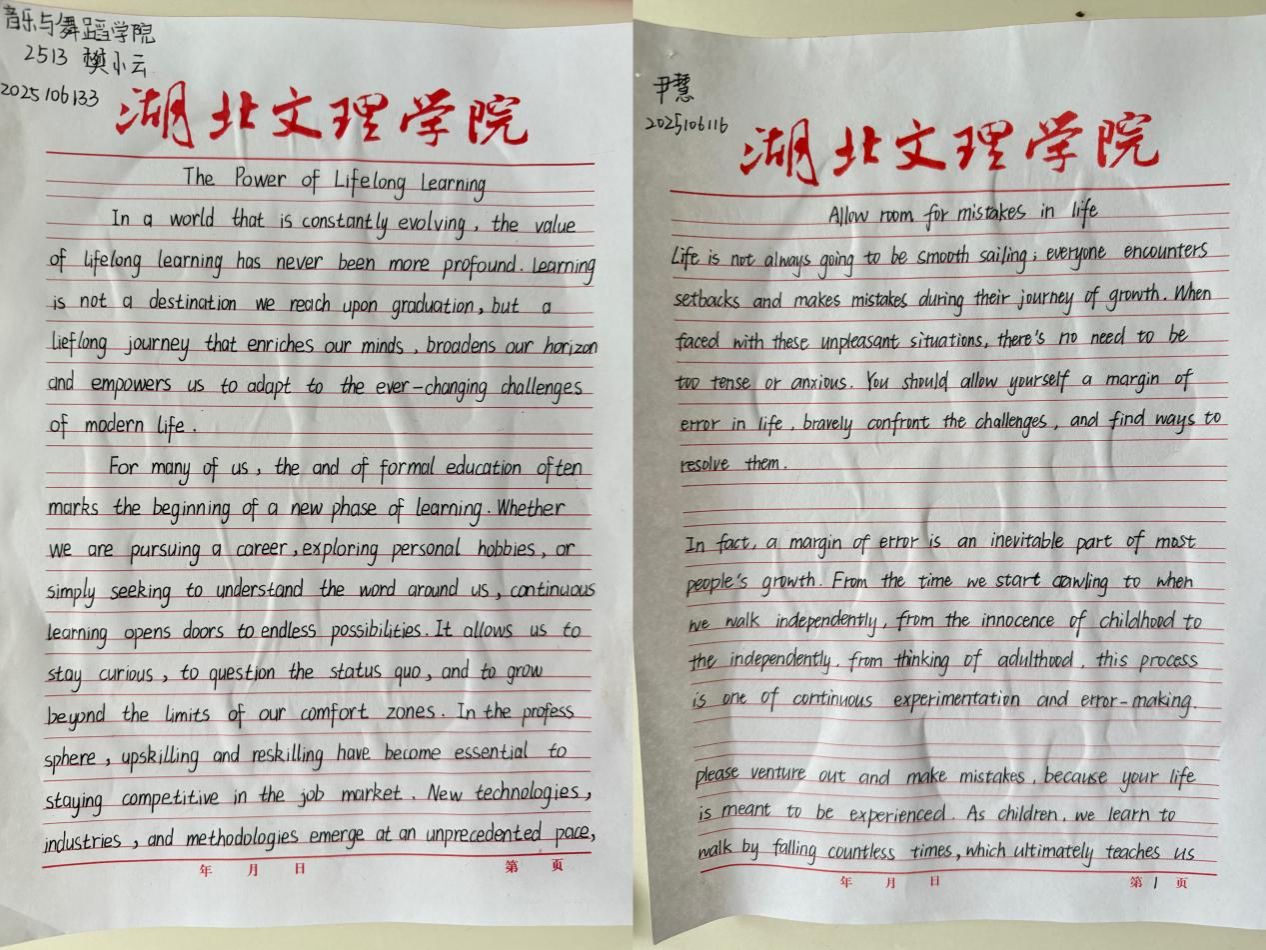 音乐与舞蹈学院
2513 樊小云
2025106133
湖北文理学院
The Power of Lifelong Learning
In a world that is constantly evolving, the value
of lifelong learning has never been more profound. Learning
is not a destination we reach upon graduation, but a
lieflong journey that enriches our minds, broadens our horizon
and empowers us to adapt to the ever-changing challenges
of modern life.
For many of us, the and of formal education often
marks the beginning of a new phase of learning. Whether
we are pursuing a career, exploring personal hobbies, or
simply seeking to understand the word around us, continuous
learning opens doors to endless possibilities. It allows us to
stay curious, to question the status quo, and to grow
beyond the limits of our comfort zones. In the profess
sphere, upskilling and reskilling have become essential to
staying competitive in the job market. New technologies,
industries, and methodologies emerge at an unprecedented pace,
年 月 日 第 页
尹慧
2025106116
湖北文理学院
Allow room for mistakes in life
Life is not always going to be smooth sailing; everyone encounters
setbacks and makes mistakes during their journey of growth. When
faced with these unpleasant situations, there's no need to be
too tense or anxious. You should allow yourself a margin of
error in life, bravely confront the challenges, and find ways to
resolve them.
In fact, a margin of error is an inevitable part of most
people's growth. From the time we start crawling to when
we walk independently, from the innocence of childhood to
the independently, from thinking of adulthood, this process
is one of continuous experimentation and error-making.
please venture out and make mistakes, because your life
is meant to be experienced. As children, we learn to
walk by falling countless times, which ultimately teaches us
年 月 日 第 1 页